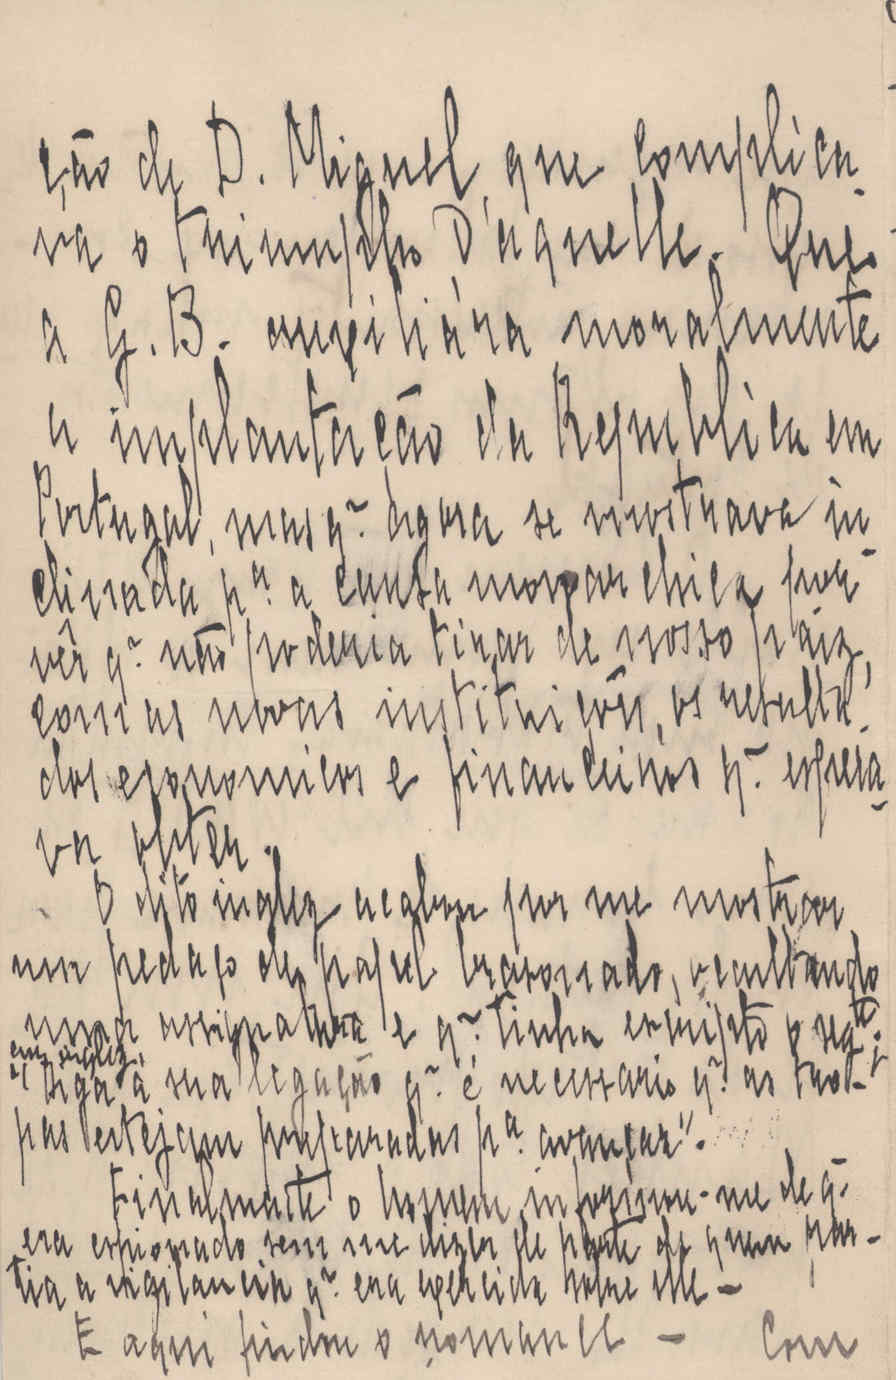 ção de D. Miguel, que complica-
va o triumpho d'aquelle. Que
a G. B. auxiliára moralmente
a implantação da Republica em
Portugal, mas q.^e agora se mostrava in-
clinada p.^a a causa monarchica por
vêr q.^e não poderia tirar de nosso páiz,
com as novas instituições, os resulta-
dos economicos e financeiros q.^e espera-
va obter.
O dito inglez acabou por me mostrar
um pedaço de papel brasonado, occultando
uma assignatura e q.^e tinha escripto o seg.^te:
em inglez,
"Diga á sua legação q.^e é necessario q.^e as tro-
pas estejam preparadas p.^a avançar".
Finalmente o homem informou-me de q.^e
era espionado sem me dizer de parte de quem par-
tia a vigilancia q.^e era exercida sobre elle -
E aqui findou o romance - Com